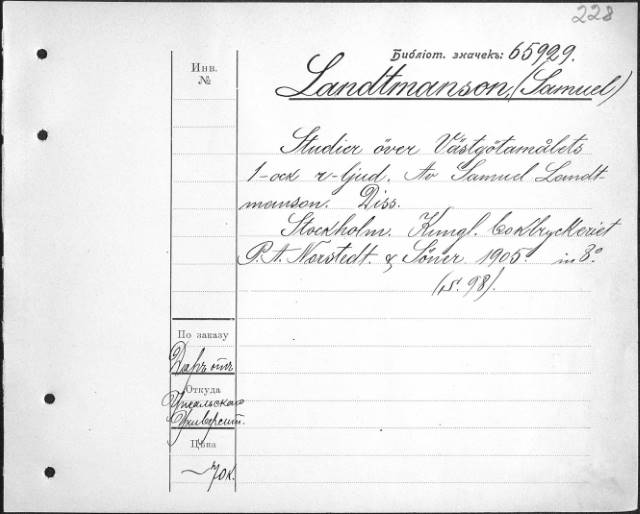 228
Библіот. значекъ: 65929.
Инв.
№
Landtmanson, (Samuel)
Studier över Västgötamålets
l- ock r-ljud. Av Samuel Landt-
manson. Diss.
Stockholm. Kungl. boktryckeriet
P. A. Norstedt & Söner 1905. in 8°
(р. 98).
По заказу
Даръ отъ
Откуда
Упсальскаго
Университ.
Цѣна
70 к.